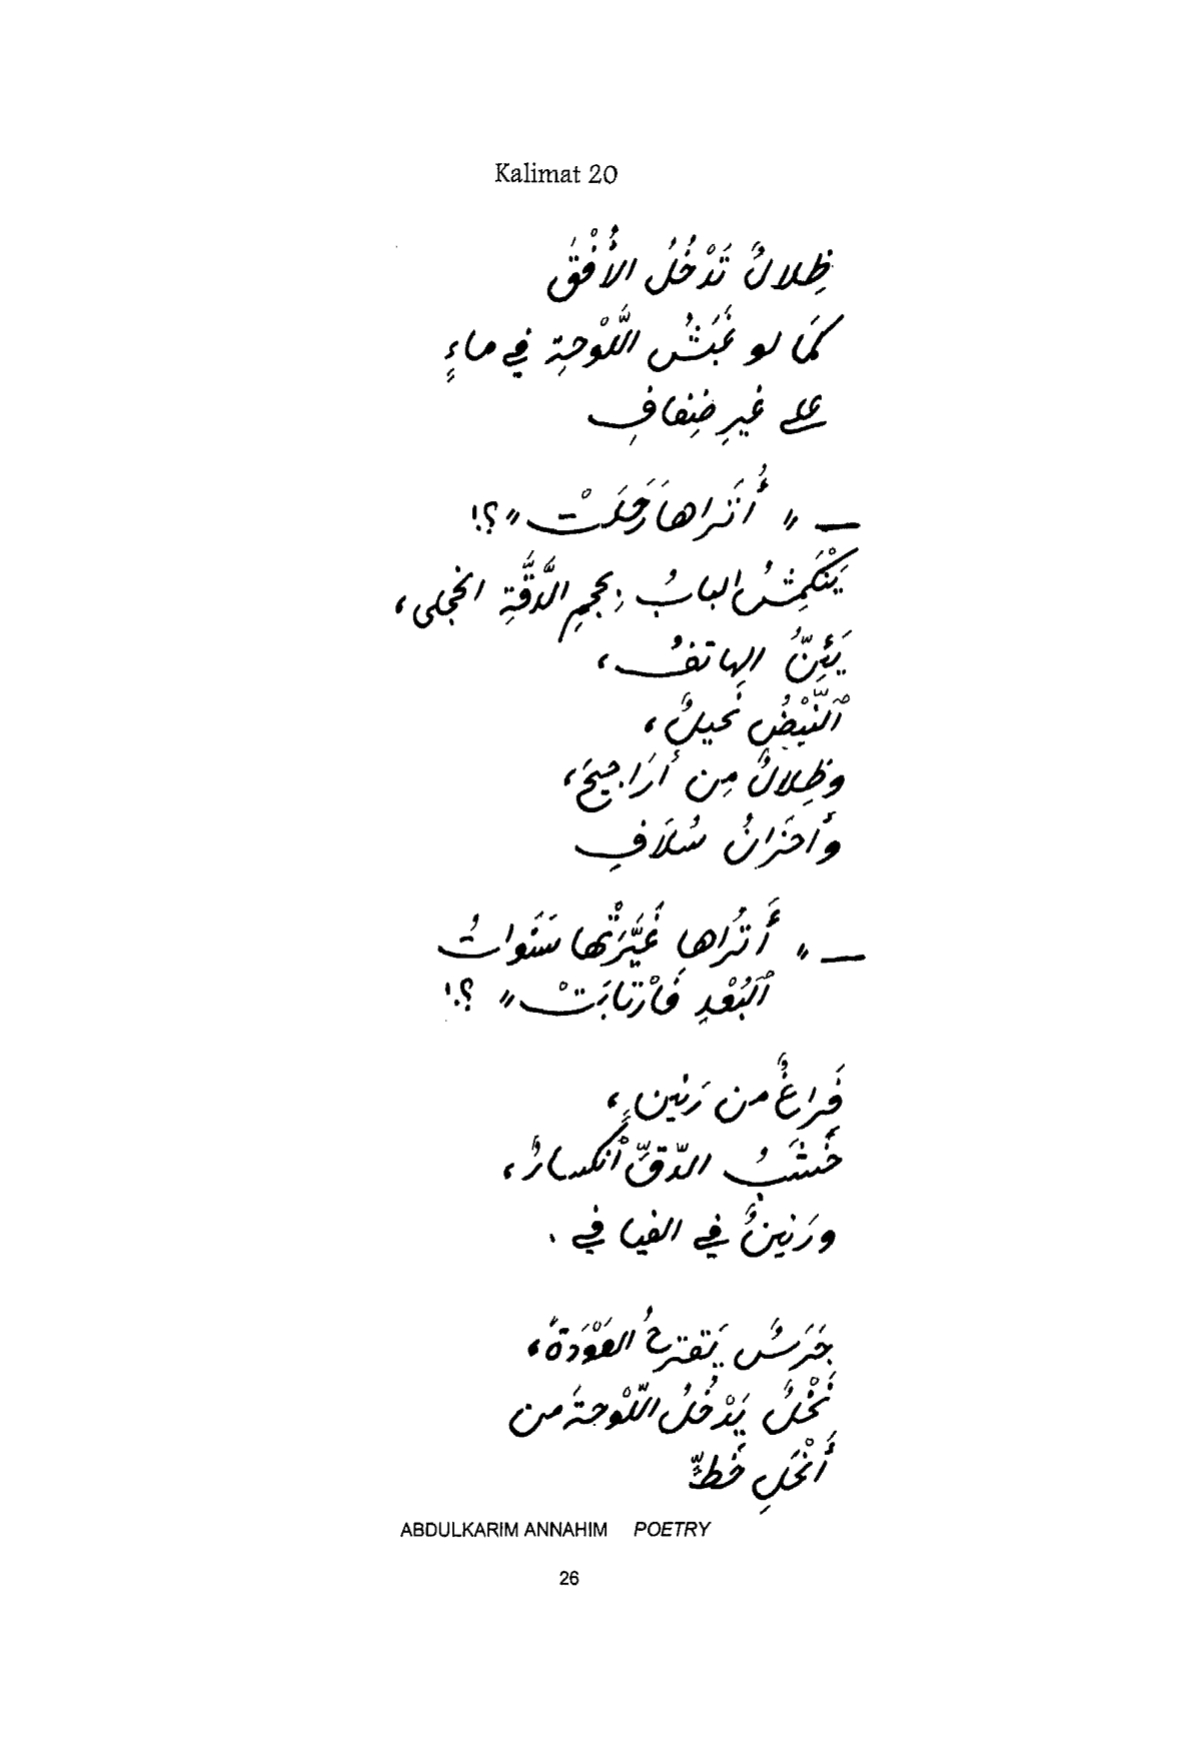 Kalimat 20
ظِلالٌ تَدْخُلُ الأُفْقَ
كَمَا لو غَبَشُ اللَّوْحةِ في ماءٍ
على غيرِ ضِفافِ
— " أَتُراها رَحَلَتْ " ؟!
يَنْكَمِشُ البابُ بحجمِ الدَّقَّةِ الخجلى ،
يَئِنُّ الهاتفُ ،
ٱلنَّبْضُ نحيلٌ ،
وظِلالٌ مِن أرَاجيحَ ،
وأحزانُ سُلَافِ
— " أَتُراها غَيَّرَتْها سَنَواتُ
ٱلبُعْدِ فَٱرْتابَتْ " ؟!
فَراغٌ من رَنينٍ ،
خَشَبُ الدّقِّ ٱنكسارٌ ،
ورَنينٌ في الفيافي .
جَرَسٌ يَقترحُ العَوْدَةَ ،
نَخْلٌ يَدْخُلُ اللّوْحةَ من
أَنْحَلِ خَطٍّ
ABDULKARIM ANNAHIM POETRY
26